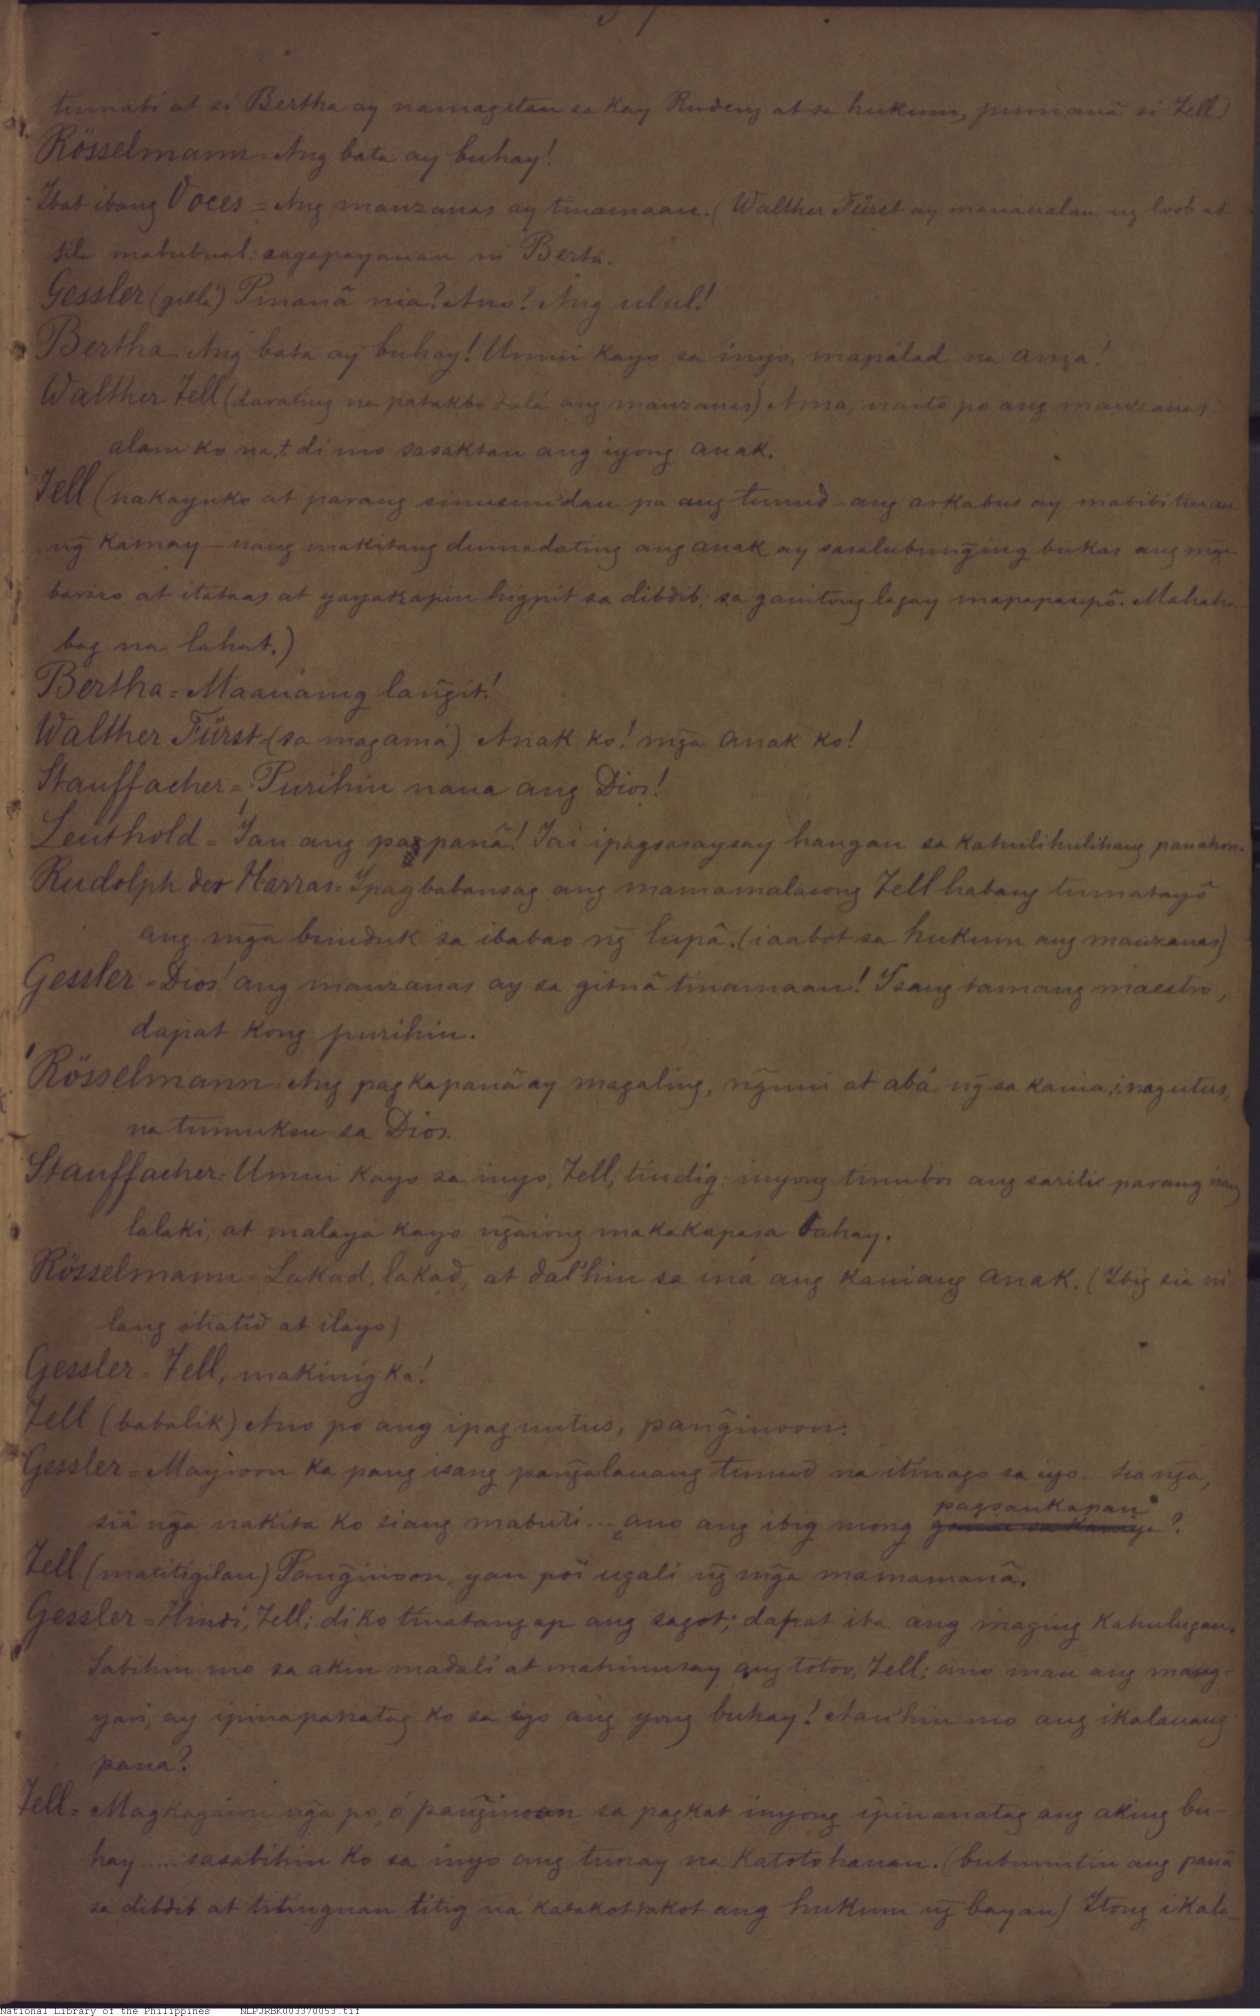 tumabi at si Bertha ay namagitan sa kay Rudenz at sa hukum, pumaná si Tell)
Rösselmann = Ang bata ay buhay!
Ibat ibang Voces = Ang manzanas ay tinamaan. (Walther Fürst ay mananalau ng loob at
mabubual: sagapayanan ni Berta.
Gessler (gitlá) Pinanã nia? Ano? Ang ulul!
Bertha. Ang bata ay buhay! Umui kayo sa inyo, mapálad na ama!
Walther Tell (darating na patakbo dalá ang manzanas) Ama, naito po ang manzanas:
alam ko na,t di mo sasaktan ang iyong anak.
Tell (nakayuko at parang sinusundan pa ang tunud - ang arkabus ay mabibitiuan
ng̃ kamay — nang makitang dumadating ang anak ay sasalubung̃ing bukas ang mg̃a
barazo at itataas at yayakapin higpit sa dibdib; sa ganitong lagay mapapaupô. Mahaha-
bag na lahat.)
Bertha = Maauaing lang̃it!
Walther Fürst - (sa magamá) Anak ko! mg̃a anak ko!
Stauffacher = ¡Purihin naua ang Dios!
Leuthold = ¡Yan ang pagpanã! Tai ipagsasaysay hangan sa kahulihulihang panahon.
Rudolph der Harras = Ipagbabansag ang mamamalasong Tell habang tumatayô
ang mg̃a bunduk sa ibabao ng̃ lupâ. (iaabot sa hukum ang manzanas)
Gessler = Dios! ang manzanas ay sa gitnã tinamaan! Isang tamang maestro,
dapat kong purihin.
Rösselmann = Ang pagkapanã ay magaling, ng̃uni at abá ng̃ sa kania,i; nagutus,
na tumukso sa Dios.
Stauffacher = Umui kayo sa inyo, Tell, tindig; inyong tinubos ang sarili parang isang
lalaki, at malaya kayo ng̃aiong makakapasa bahay.
Rösselmann = Lakad, lakad, at dal'hin sa iná ang kaniang anak. (Ibig sia ni
lang ihatid at ilayo)
Gessler = Tell, makinig ka!
Tell (babalik) Ano po ang ipaguutus, pang̃inoon:
Gessler = Mayroon ka pang isang pang̃alauang tunud na itinago sa iyo. Sia ng̃a,
siá ng̃a nakita ko siang mabuti ... ¿ano ang ibig mong pagsankapan?
Tell (matitigilan) Pang̃inoon, yan poi ugali ng̃ mg̃a mamamanã.
Gessler = Hindi, Tell; di ko tinatangap ang sagot; dapat iba ang maging kahulugan.
Sabihin mo sa akin madali at mahinusay ang totoo, Tell; ano man ang mang-
yari, ay ipinapanatag ko sa iyo ang yong buhay! Aanhin mo ang ikalauang
pana?
Tell = Magkagaion ng̃a po, ó pang̃inoon sa pagkat inyong ipinanatag ang aking bu-
hay ..... sasabihin ko sa inyo ang tunay na katotohanan. (bubunutin ang panã
sa dibdib at titingnan titig na katakottakot ang hukum ng̃ bayan) Itong ikala-
National Library of the Philippines NLPJRBK003370053.tif